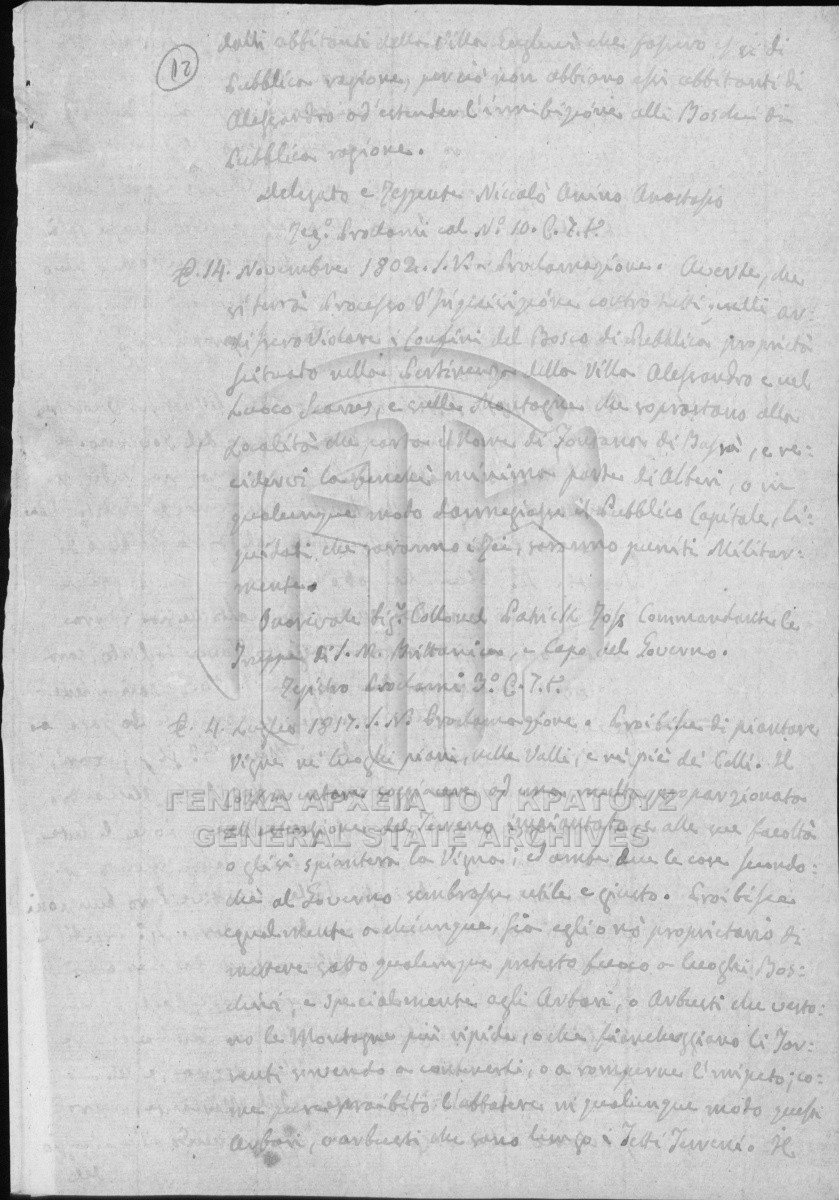 12
dalli abbitanti della Villa che fossero essi di
Pubblica ragione, perciò non abbiano essi abbitanti di
Alessandro ad estender l'innibizione alli Boschi di
Pubblica ragione.
Delegato e Reggente Niccolò Anino Anastasio
Reg.º Proclami col Nº 10. C. T. tº
14. Novembre 1802. S. V. Proclamazione. Averte, che
si terrà Processo d'Inquisizione contro tutti quelli ar-
dissero Violare i Confini del Bosco di Pubblica proprietà
scituato nella Pertinenza della Villa Alessandro e nel
Luoco e nelle Montagne che soprastano alla
Località che porta il Nome di di e re-
cidervi la benchè minima parte di Alberi, o in
qualunque modo danneggiasse il Pubblico Capitale, li-
quidati che saranno i Rei, saranno puniti Militar-
mente.
Onorivole Sig.r Collonel Patrick Ross Commandante le
Truppe di S. M. Brittanica, e Capo del Governo.
Registro Proclami 3º C. T. tº
4. Luglio 1817. S. N. Proclamazione. Proibisce di piantare
Vigne ne' luoghi piani, nelle Valli, e ne' piè de' Colli. Il
soggiacerà ad una multa proporzionata
all'estensione del Terreno impiantato e alle sue facoltà
o gli si spianterà la Vigna; ed ambe due le cose secondo-
chè al Governo sembrasse utile e giusto. Proibisce
egualmente a chiunque, sia egli o nò proprietario di
mettere sotto qualunque pretesto fuoco a luoghi Bos-
chivi, e specialmente agli Arbori, o Arbusti che vesto-
no le Montagne più ripide, o che fiancheggiano li Tor-
renti servendo a contenerli, o a romperne l'impeto; co-
me pure proibito l'abbatere in qualunque modo questi
Arbori, o arbusti che sono lungo i Terreni. Il
ΓΕΝΙΚΑ ΑΡΧΕΙΑ ΤΟΥ ΚΡΑΤΟΥΣ
GENERAL STATE ARCHIVES